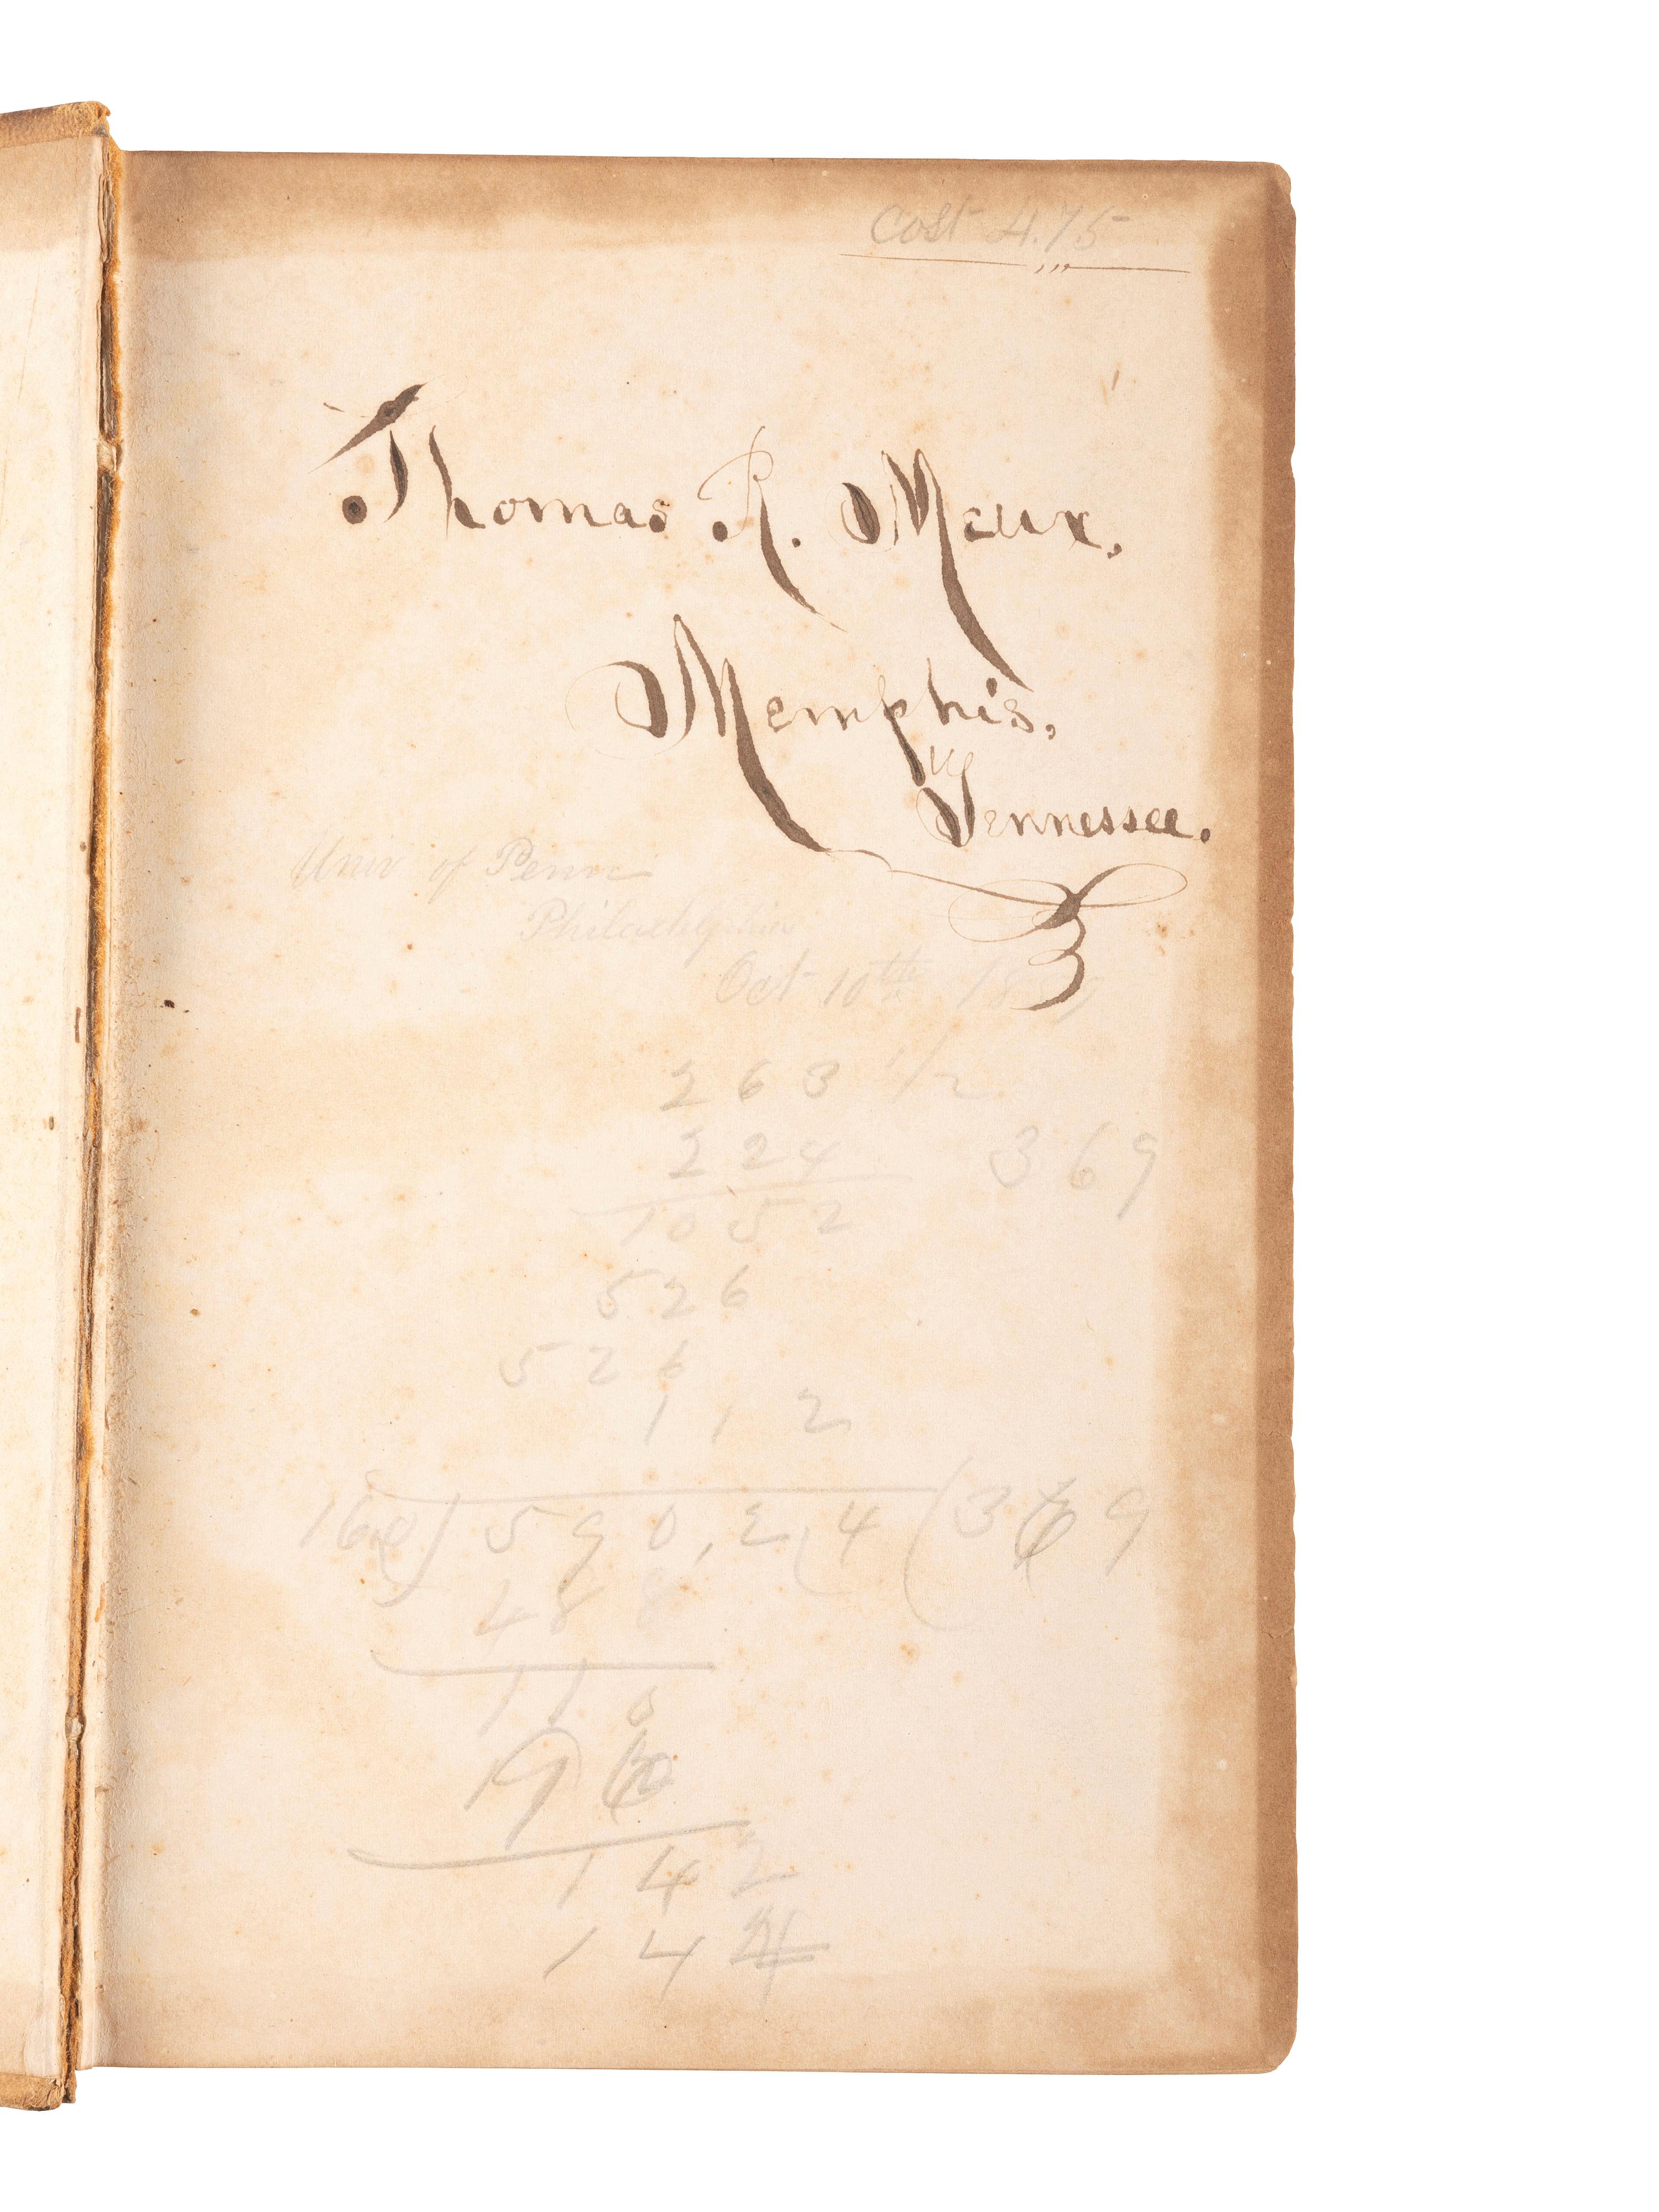 Cost 4.75
Thomas R. Meux,
Memphis,
Tennessee.
Univ of Penn
Philadelphia
Oct 10th
263 1/2
224 369
1052
526
526
112
160) 590,24 (369
488
110
96
142
144